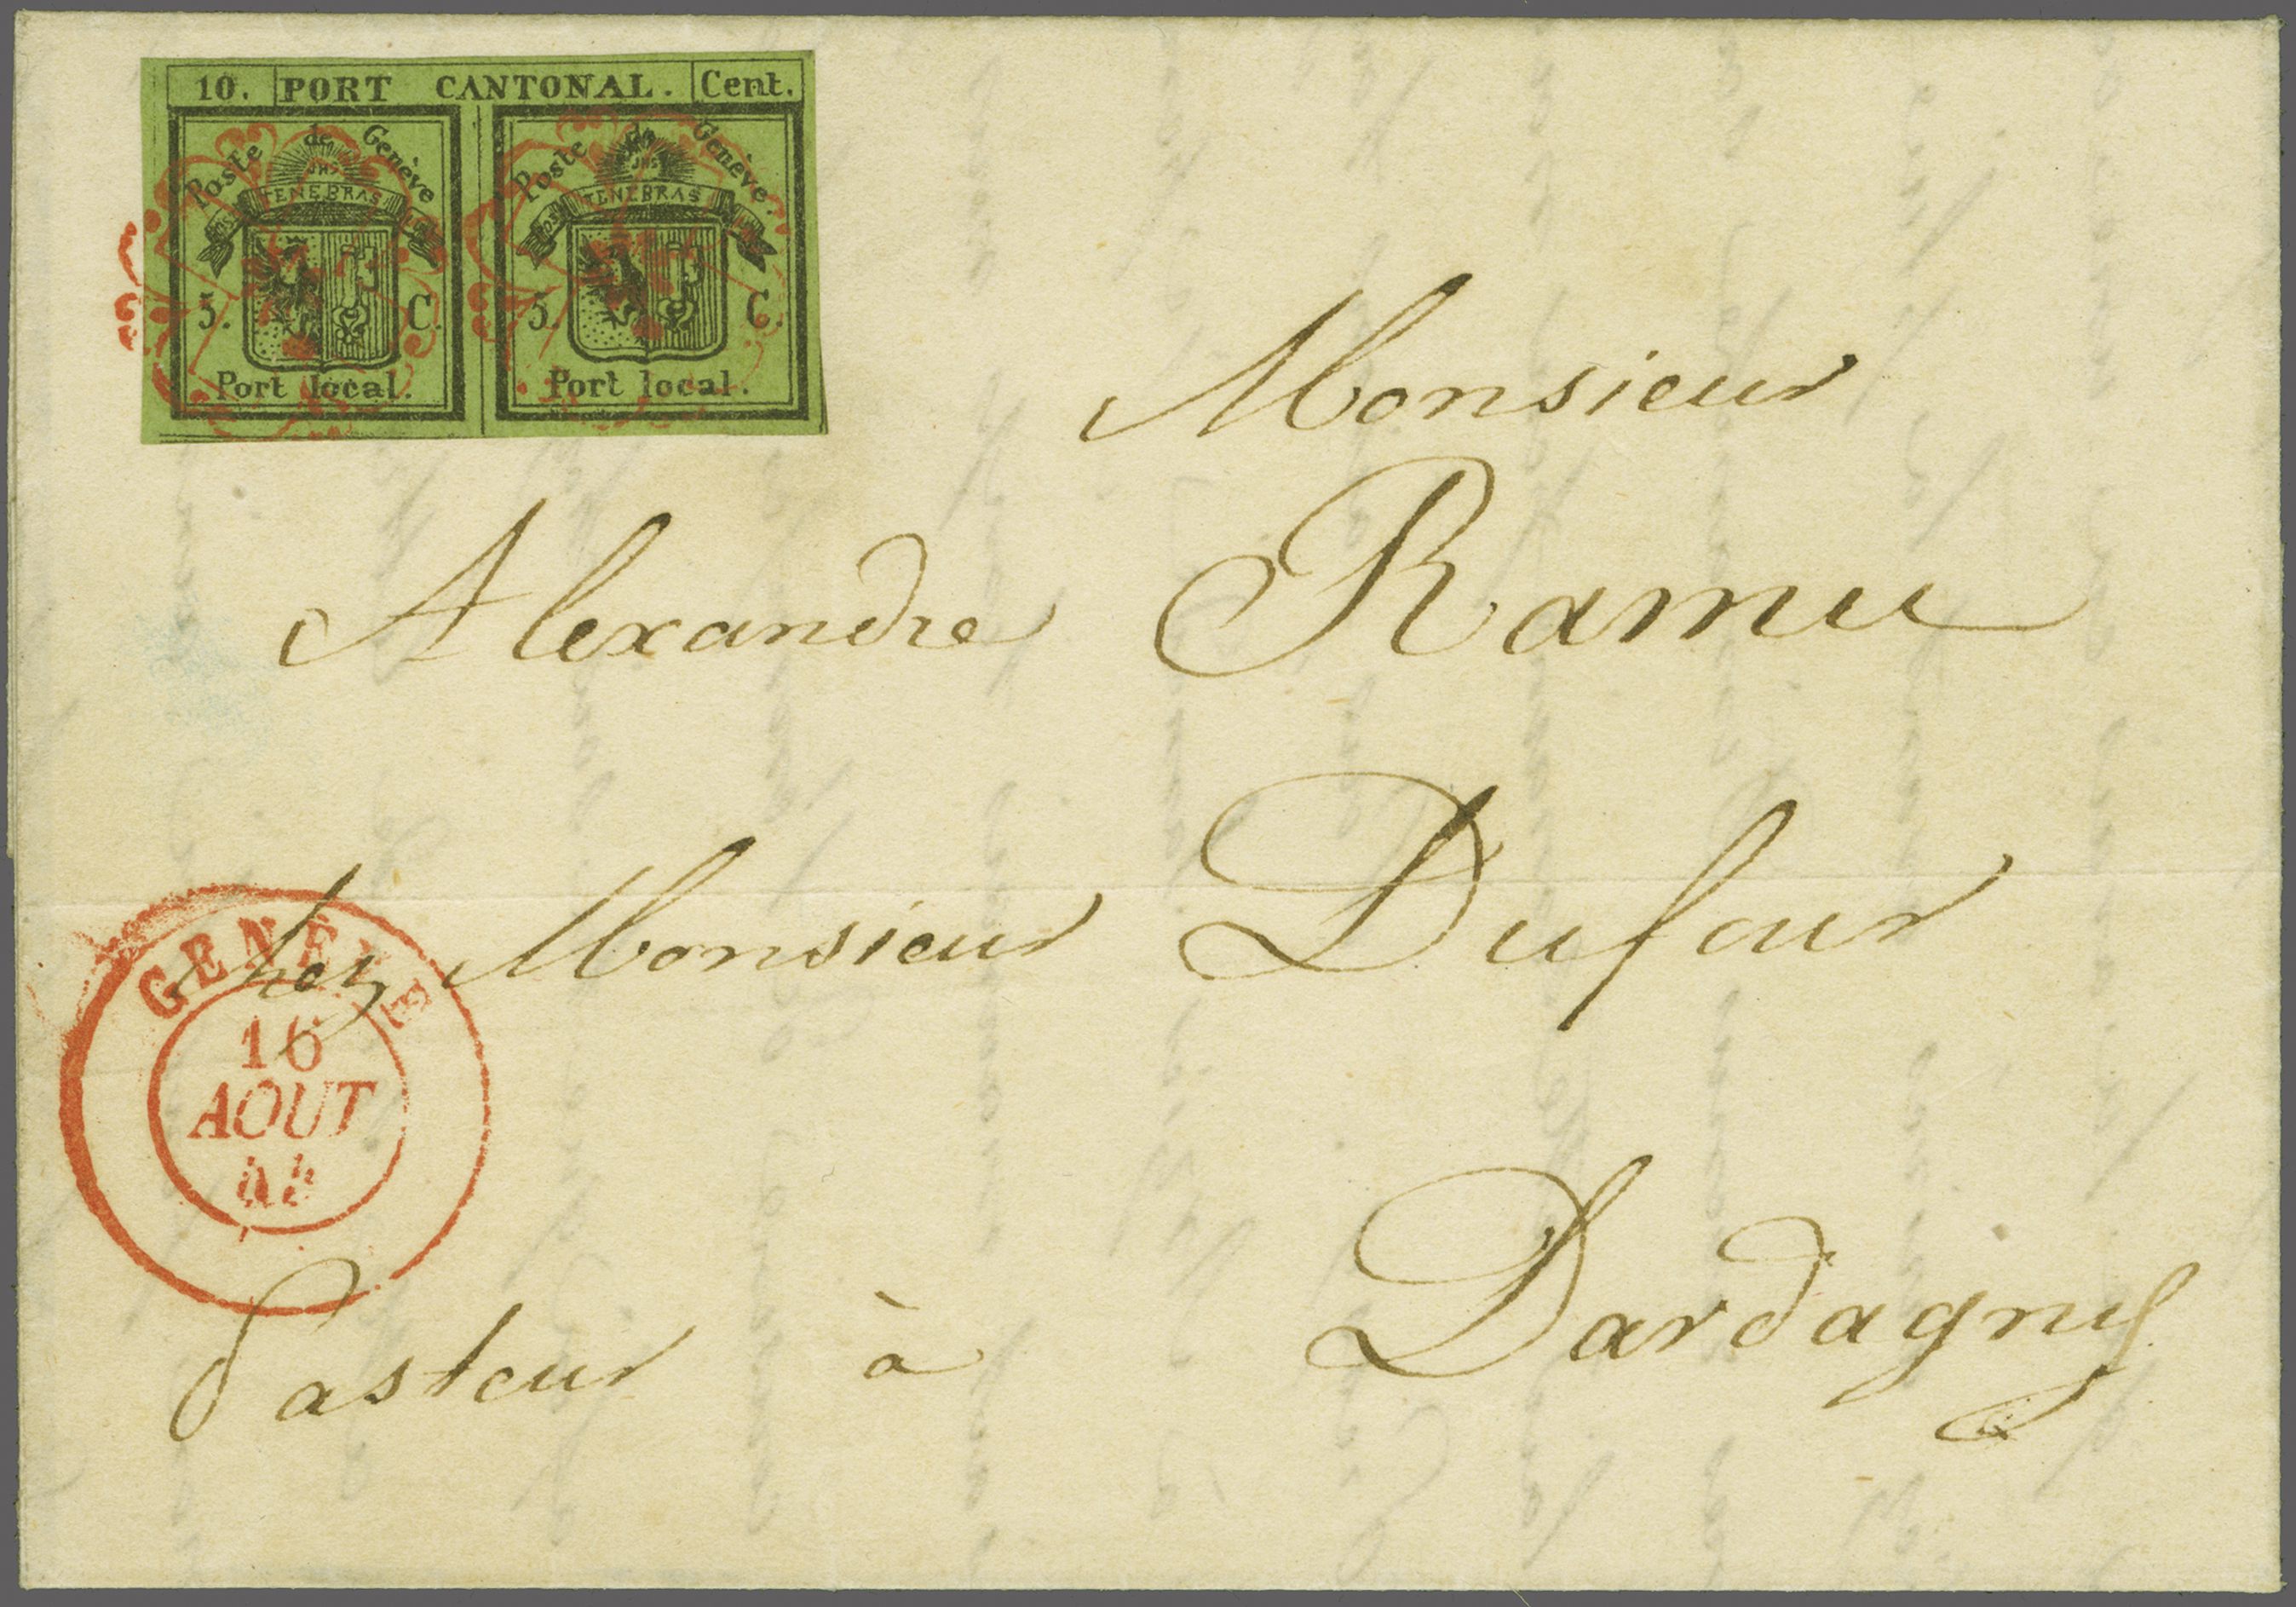 10. PORT CANTONAL. Cent.
Poste de Genève
JHS
TENEBRAS
5. C.
Port local.
Poste de Genève.
JHS
TENEBRAS
5. C.
Port local.
Monsieur
Alexandre Ramu
chez Monsieur Dufour
Pasteur à Dardagny
GENEVE
16
AOUT